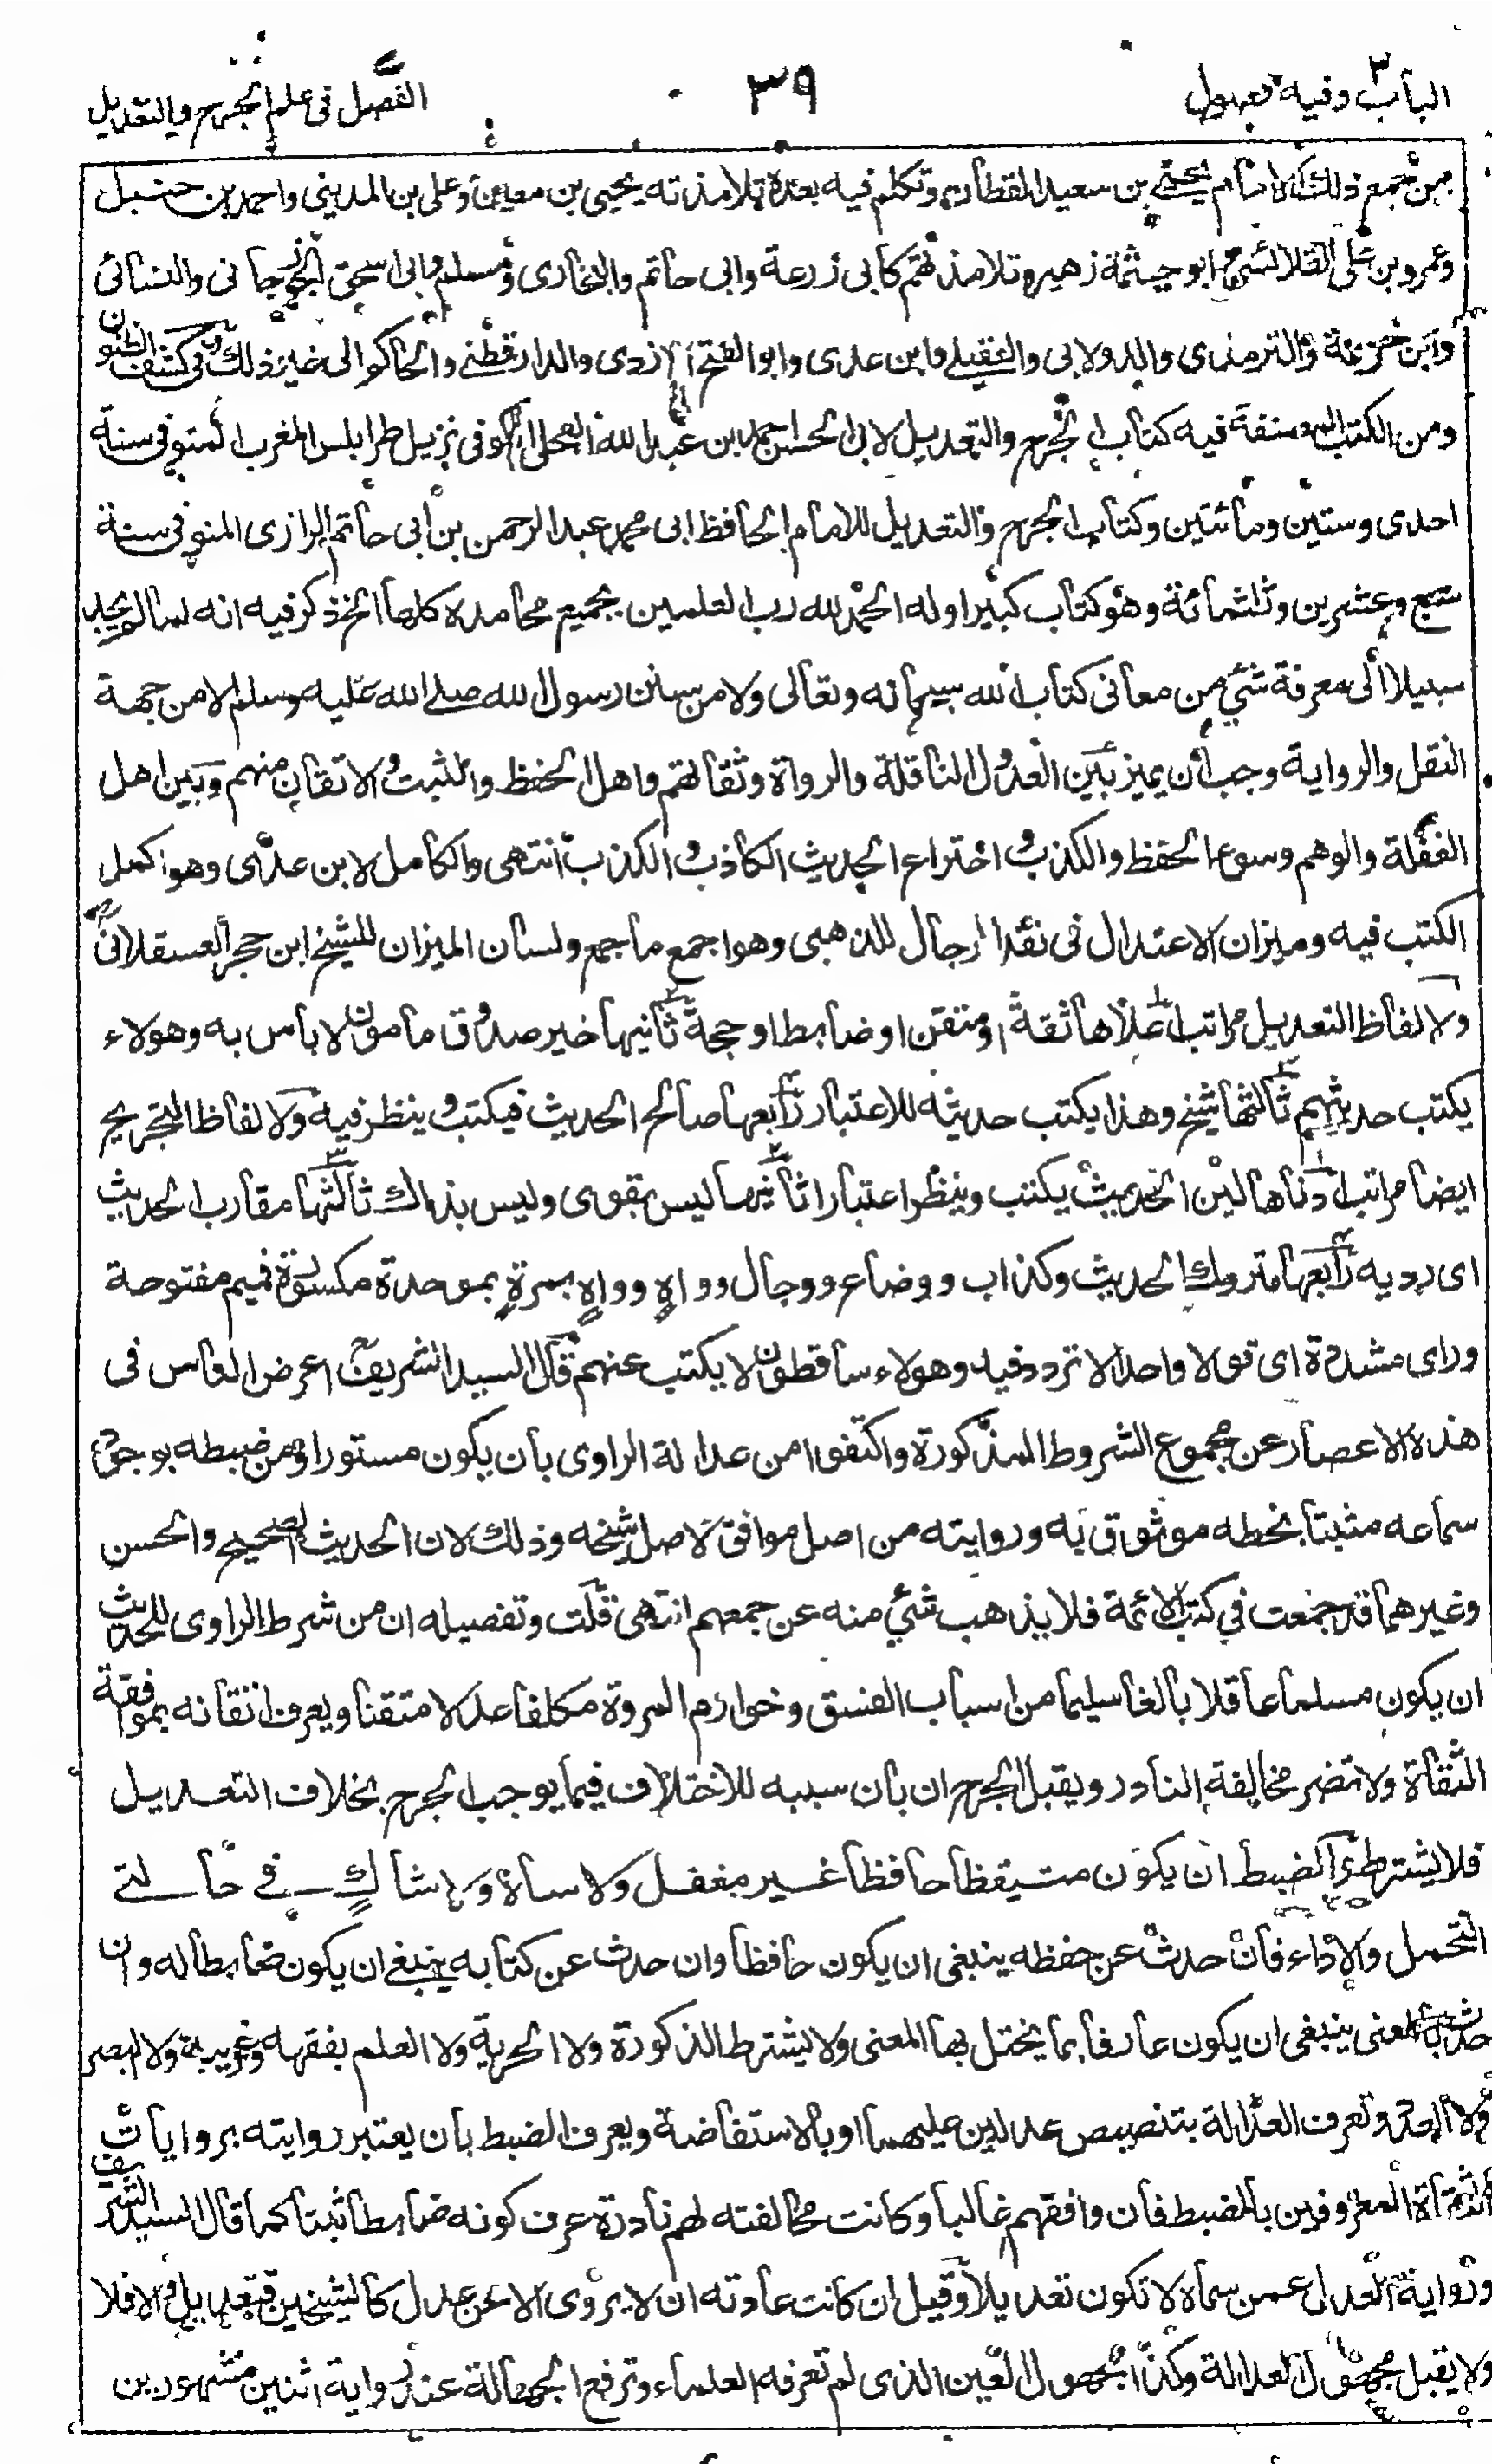 الباب ٣ وفيه فصول
٣٩
الفصل فى علم الجرح والتعديل
ممن جمع ذلك الامام يحيى بن سعيد القطان وتكلم فيه بعده تلامذته يحيى بن معين وعلى بن المدينى واحمد بن حنبل
وعمرو بن على الفلاس وابو خيثمة زهير وتلامذتهم كابى زرعة وابى حاتم والبخارى ومسلم وابى اسحق الجوزجانى والنسائى
وابن خزيمة والترمذى والدولابى والعقيلى وابن عدى وابو الفتح الازدى والدارقطنى والحاكم الى غير ذلك وفى كشف الظنون
ومن الكتب المصنفة فيه كتاب الجرح والتعديل لابى الحسن احمد بن عبد الله العجلى الكوفى نزيل طرابلس المغرب المتوفى سنة
احدى وستين ومائتين وكتاب الجرح والتعديل للامام الحافظ ابى محمد عبد الرحمن بن ابى حاتم الرازى المتوفى سنة
سبع وعشرين وثلثمائة وهو كتاب كبير اوله الحمد لله رب العلمين بجميع محامده كلها الخ ذكر فيه انه لما لم يجد
سبيلا الى معرفة شئ من معانى كتاب الله سبحانه وتعالى ولا من سنن رسول الله صلى الله عليه وسلم الا من جهة
النقل والرواية وجب ان يميز بين العدول الناقلة والرواة وثقاتهم واهل الحفظ والثبت والاتقان منهم وبين اهل
الغفلة والوهم وسوء الحفظ والكذب واختراع الحديث الكاذب والكذب انتهى والكامل لابن عدى وهو اكمل
الكتب فيه وميزان الاعتدال فى نقد الرجال للذهبى وهو اجمع ما جمع ولسان الميزان للشيخ ابن حجر العسقلانى
ولالفاظ التعديل مراتب اعلاها ثقة او متقن او ضابط او حجة ثانيها خير صدوق مامون لا باس به وهولاء
يكتب حديثهم ثالثها شيخ وهذا يكتب حديثه للاعتبار رابعها صالح الحديث فيكتب وينظر فيه ولالفاظ التجريح
ايضا مراتب ادناها لين الحديث يكتب وينظر اعتبارا ثانيها ليس بقوى وليس بذاك ثالثها مقارب الحديث
اى رديه رابعها متروك الحديث وكذاب ووضاع ودجال وواه وواه بمرة بموحدة مكسورة فميم مفتوحة
وراى مشددة اى قولا واحدا لا تردد فيه وهولاء ساقطون لا يكتب عنهم قال السيد الشريف اعرض الناس فى
هذه الاعصار عن مجموع الشروط المذكورة واكتفوا من عدالة الراوى بان يكون مستورا ومن ضبطه بوجود
سماعه مثبتا بخطه موثوق به وروايته من اصل موافق لاصل شيخه وذلك لان الحديث الصحيح والحسن
وغيرهما قد جمعت في كتب الائمة فلا يذهب شئ منه عن جمعهم انتهى قلت وتفصيله ان من شرط الراوى للحديث
ان يكون مسلما عاقلا بالغا سليما من اسباب الفسق وخوارم المروة مكلفا عدلا متقنا ويعرف اتقانه بموافقة
الثقاة ولا تضر مخالفة النادر ويقبل الجرح ان بان سببه للاختلاف فيما يوجب الجرح بخلاف التعديل
فلا يشترط والضبط ان يكون متيقظا حافظا غير مغفل ولا ساه ولا شاك في حالتى
التحمل والاداء فان حدث عن حفظه ينبغى ان يكون حافظا وان حدث عن كتابه ينبغى ان يكون ضابطا له وان
حدث بالمعنى ينبغى ان يكون عارفا بما يختل بها المعنى ولا يشترط الذكورة ولا الحرية ولا العلم بفقهه وغريبه ولا البصر
ولا العدد وتعرف العدالة بتنصيص عدلين عليهما او بالاستفاضة ويعرف الضبط بان يعتبر روايته بروايات
الثقاة المعروفين بالضبط فان وافقهم غالبا وكانت مخالفته لهم نادرة عرف كونه ضابطا ثبتا كما قال السيد الشريف
ورواية العدل عمن سماه لا تكون تعديلا وقيل ان كانت عادته ان لا يروى الا عن عدل كالشيخين فتعديل والا فلا
ولا يقبل مجهول العدالة وكذا مجهول العين الذى لم تعرفه العلماء وترفع الجهالة عنه رواية اثنين مشهورين